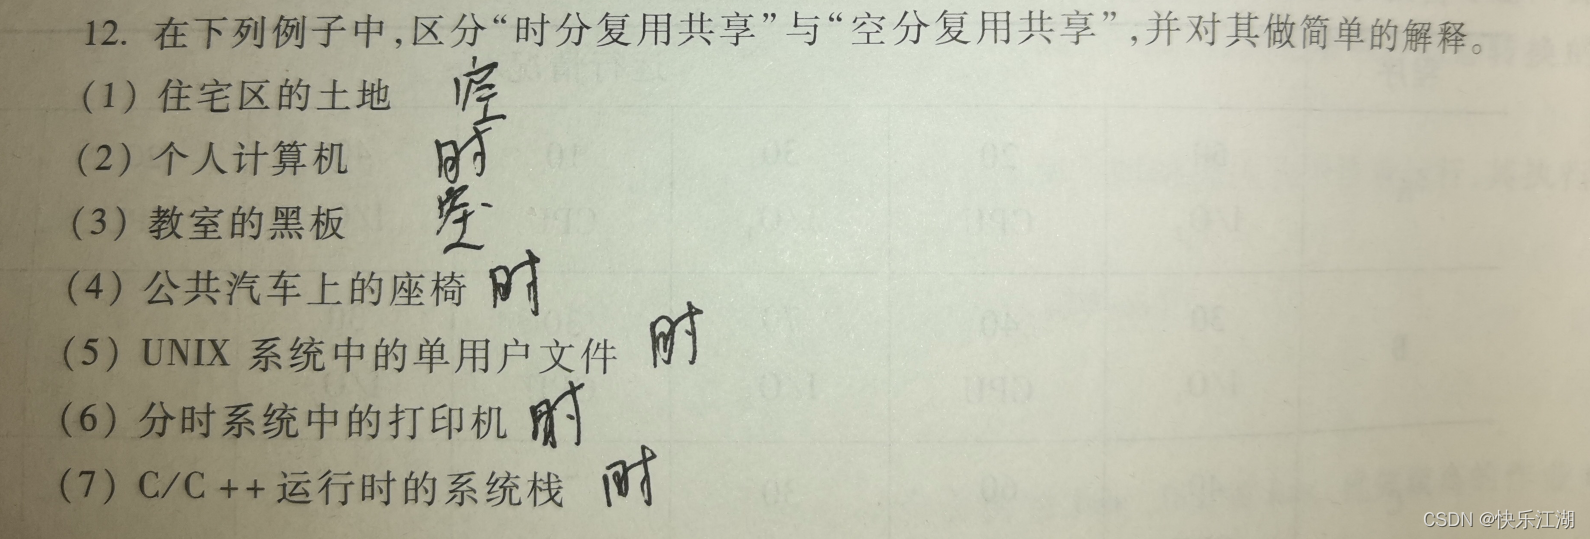 12. 在下列例子中,区分“时分复用共享”与“空分复用共享”,并对其做简单的解释。
(1) 住宅区的土地 空
(2) 个人计算机 时
(3) 教室的黑板 空
(4) 公共汽车上的座椅 时
(5) UNIX 系统中的单用户文件 时
(6) 分时系统中的打印机 时
(7) C/C ++运行时的系统栈 时
CSDN @快乐江湖